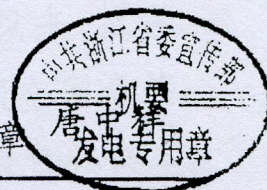 中共浙江省委宣传部
机要
唐中祥
发电专用章
章